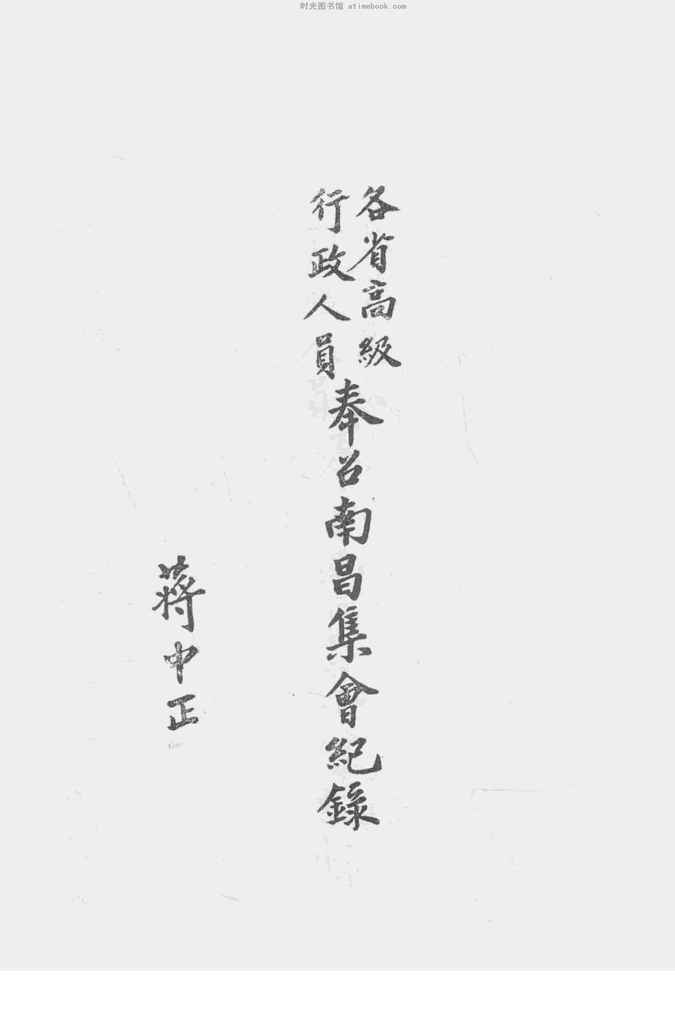 时光图书馆 atimebook.com
各省高級
行政人員
奉召南昌集會紀錄
蔣中正